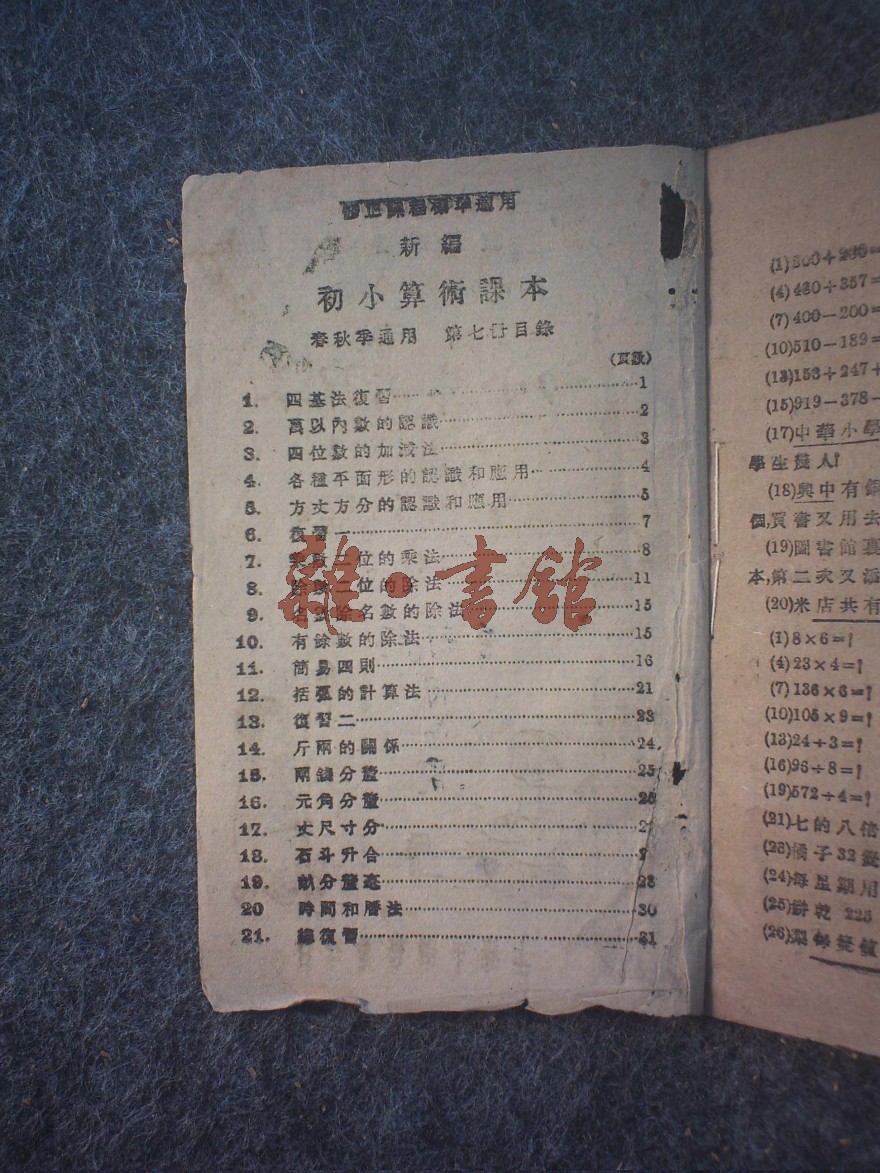 修正課程標準適用
新編
初小算術課本
春秋季通用 第七冊目錄
(頁數)
1. 四基法復習 1
2. 萬以內數的認識 2
3. 四位數的加減法 3
4. 各種平面形的認識和應用 4
5. 方丈方分的認識和應用 5
6. 復習一 7
7. 二位的乘法 8
8. 二位的除法 11
9. 名數除名數的除法 15
10. 有餘數的除法 15
11. 簡易四則 16
12. 括弧的計算法 21
13. 復習二 23
14. 斤兩的關係 24
15. 兩錢分釐 25
16. 元角分釐 26
17. 丈尺寸分
18. 石斗升合
19. 畝分釐毫 28
20 時間和曆法 30
21. 總復習 31
雜·書館
(4)430+357=
(7)400-200=
(10)510-189=
(13)153+247+
(15)919-378-
(17)中華小學
學生幾人?
(18)興中有銅
個,買書又用去
(19)圖書館裏
本,第二次又添
(20)米店共有
(1)8×6=?
(4)23×4=?
(7)136×6=?
(10)105×9=?
(13)24÷3=?
(16)96÷8=?
(19)572÷4=?
(21)七的八倍
(23)橘子32
(24)每星期用
(25)餅乾 225
(26)